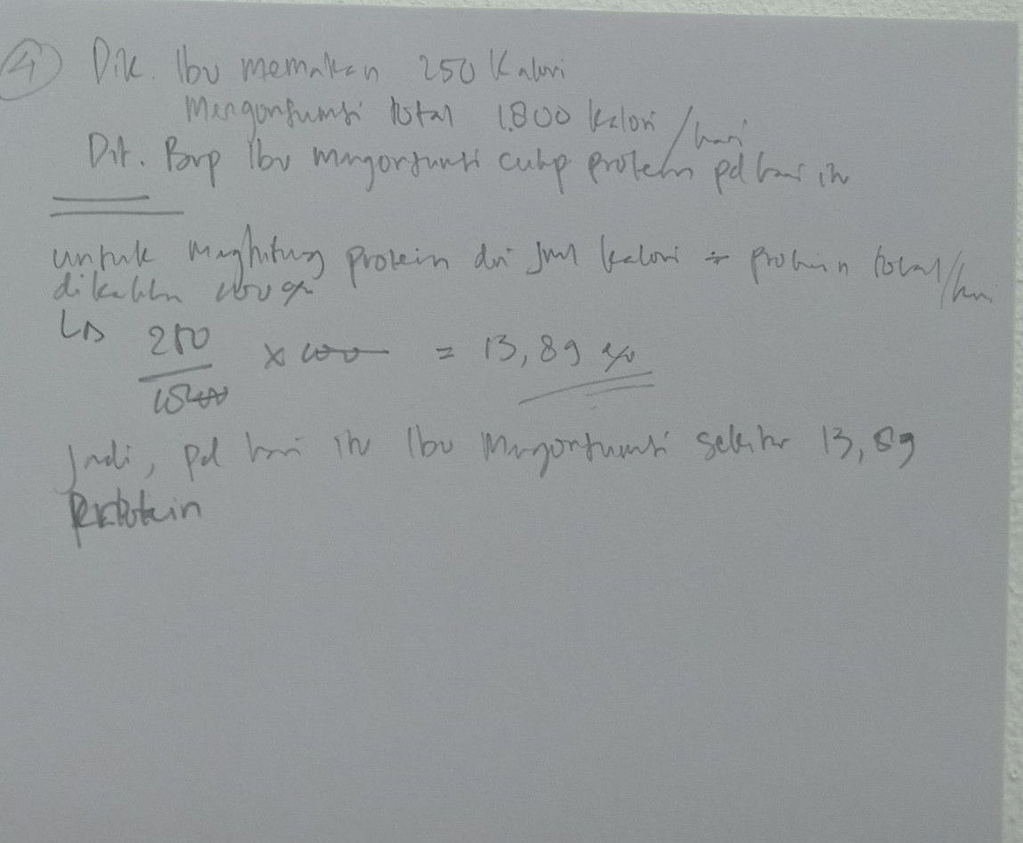 4 Dik. Ibu memakan 250 Kalori
Mengonsumsi total 1.800 kalori /hari
Dit. Brp Ibu mengonsumsi cukup protein pd hari itu
untuk menghitung protein dri Jml kalori ÷ protein total/hri
dikalikan 100%
250 / 1800 x 100 = 13,89 %
Jadi, pd hari itu Ibu mengonsumsi sekitar 13,89
Protein